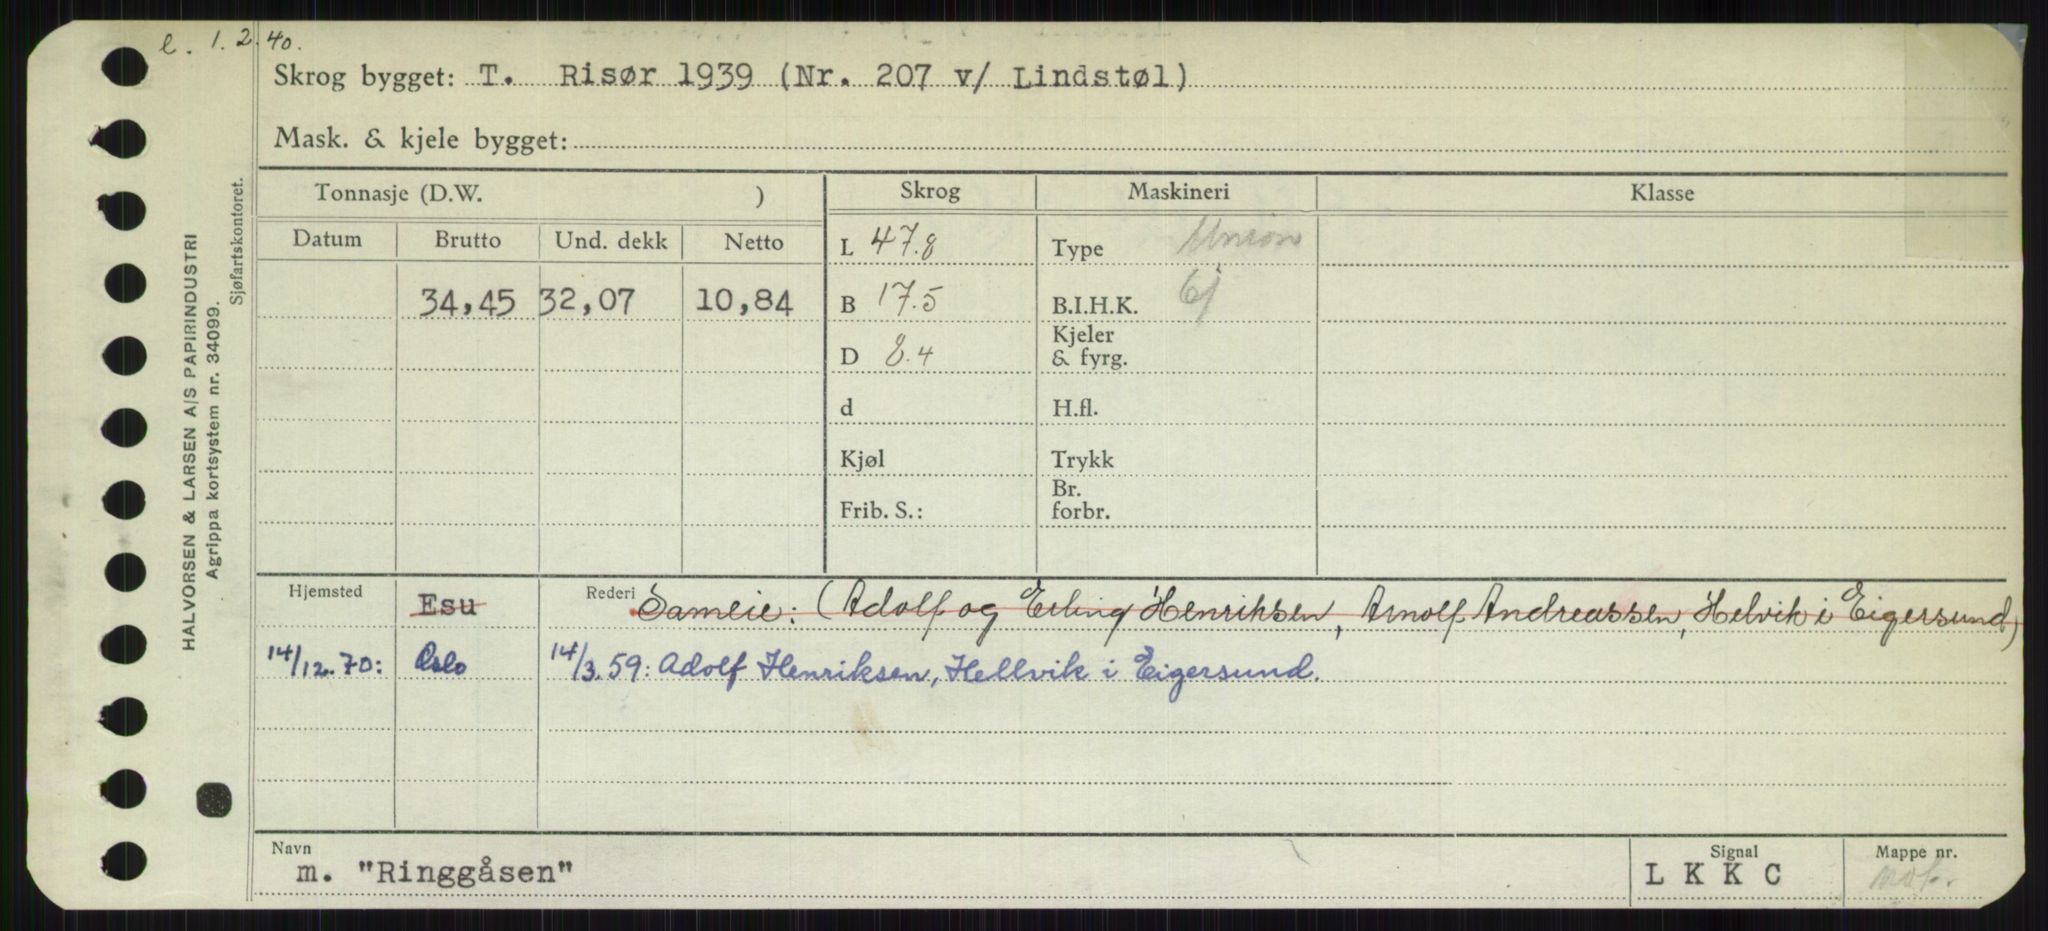 e. 1.2.40.
Skrog bygget: T. Risør 1939 (Nr. 207 v/ Lindstøl)
Mask. & kjele bygget:
HALVORSEN & LARSEN A/S PAPIRINDUSTRI
Agrippa kortsystem nr. 34099.
Sjøfartskontoret.
Tonnasje (D.W. ) Skrog Maskineri Klasse
Datum Brutto Und. dekk Netto L 47.8 Type Union
34,45 32,07 10,84 B 17.5 B.I.H.K. 6j
D 8.4 Kjeler
& fyrg.
d H.fl.
Kjøl Trykk
Frib. S.: Br.
forbr.
Hjemsted Esu Rederi Sameie: (Adolf og Erling Henriksen, Arnolf Andreassen, Helvik i Eigersund)
14/12.70: Oslo 14/3.59: Adolf Henriksen, Hellvik i Eigersund.
Navn Signal Mappe nr.
m. "Ringgåsen" L K K C mot.